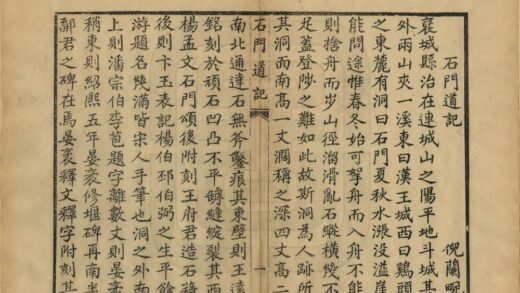 石門道記 倪蘭畹
褒城縣治在連城山之陽平地斗城其
外兩山夾一溪東曰漢王城西曰鷄頭
之東麓有洞曰石門夏秋水漲没溢崖
能問途惟春冬始可拏舟而入舟不能
則捨舟而步山徑溜滑亂石縱橫幾不
足蓋登陟之難如此故斯洞為人跡所
其洞而南高一丈濶稱之深四丈高二
石門道記 一
南北通達石無斧鑿痕其東壁則王遠
銘刻於頑石凹凸不平罅縫綻裂其西
楊孟文石門頌後附刻王府君造石積
後則卞玉表記楊伯邳伯弼之生平餘
游題名幾滿皆宋人手筆也洞之外南
上則潘宗伯李苞題字離數丈則晏袤
稱東則紹熙五年晏袤修堰碑再南半
鄐君之碑在焉晏袤釋文釋字附刻其